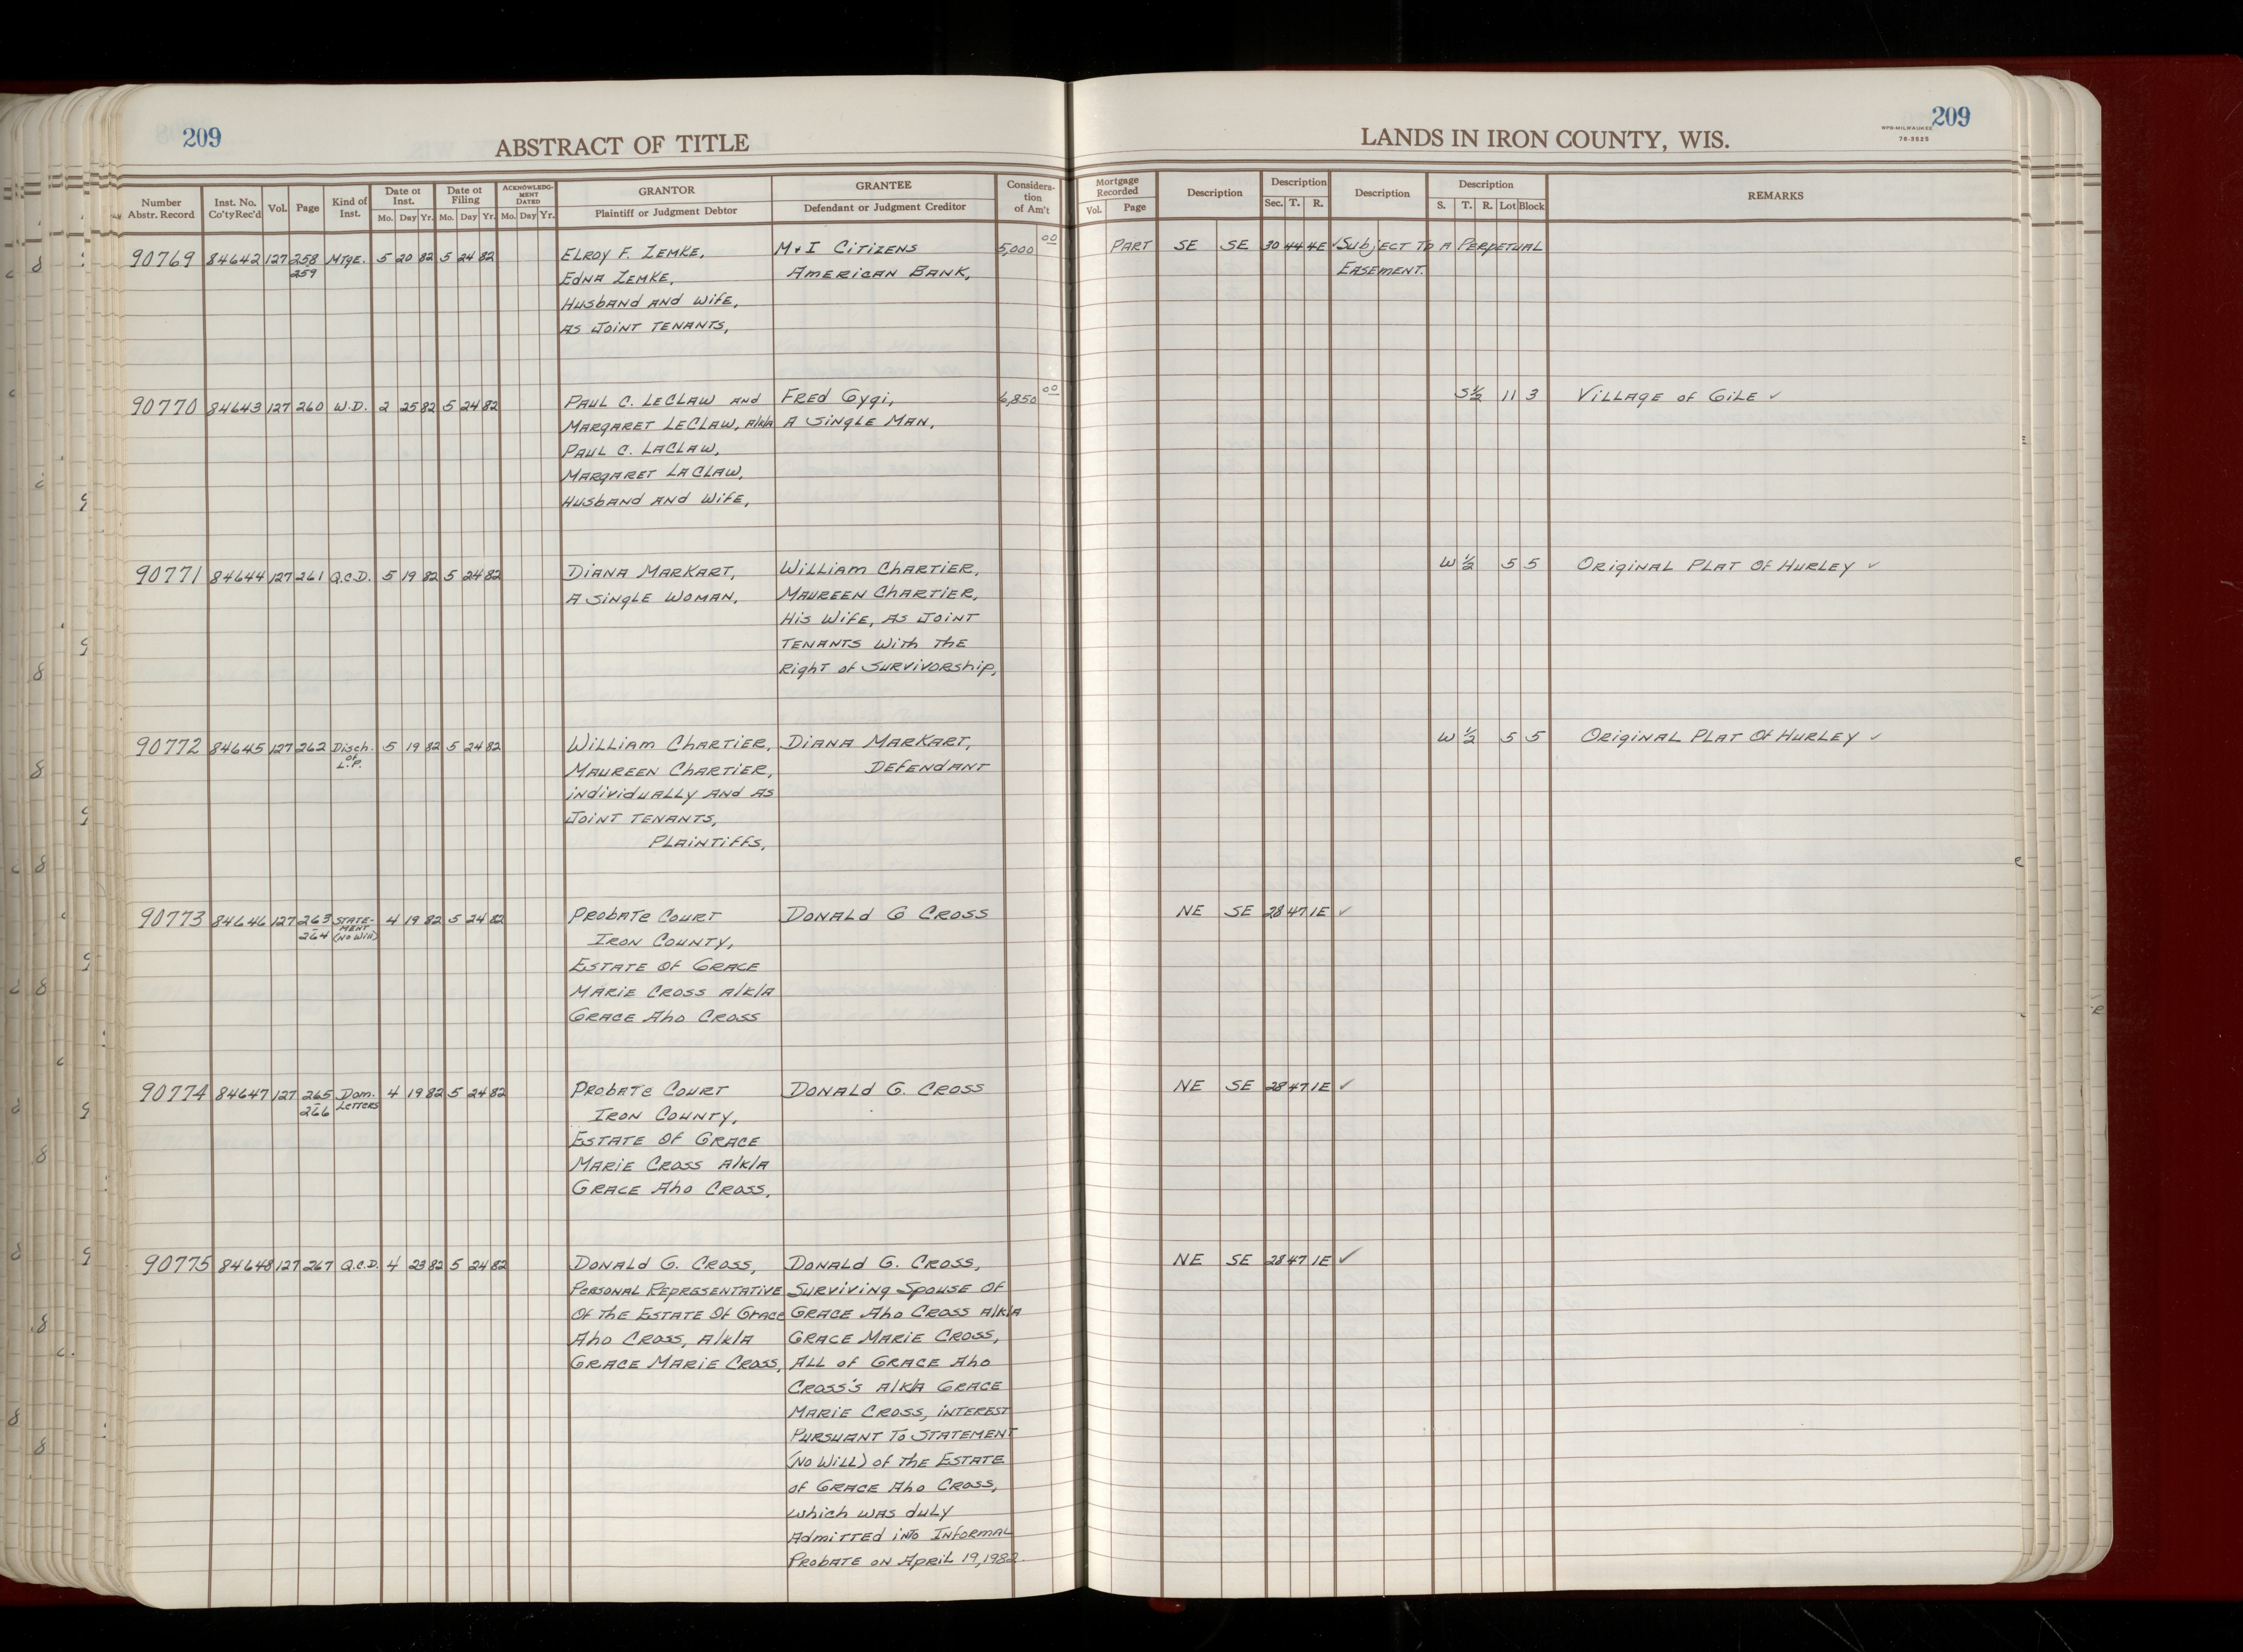 209
ABSTRACT OF TITLE
LANDS IN IRON COUNTY, WIS.
WPB-MILWAUKEE
209
Number Abstr. Record
Inst. No. Co'ty Rec'd
Vol.
Page
Kind of Inst.
Date of Inst.
Mo. Day Yr.
Date of Filing
Mo. Day Yr.
ACKNOWLEDGMENT DATED
Mo. Day Yr.
GRANTOR
Plaintiff or Judgment Debtor
GRANTEE
Defendant or Judgment Creditor
Consideration of Am't
Mortgage Recorded
Vol. Page
Description
Description
Sec. T. R.
Description
Description
S. T. R. Lot Block
REMARKS
90769 84642 127 258 Mtge. 5 20 82 5 24 82 Elroy F. Zemke, M+I Citizens 5,000 00 Part SE SE 30 44 4E ✓ Subject to a Perpetual
259 Edna Zemke, American Bank, Easement.
Husband and Wife,
as Joint Tenants,
90770 84643 127 260 W.D. 2 25 82 5 24 82 Paul C. LeClaw and Fred Gygi, 6,850 00 S 1/2 11 3 Village of Gile ✓
Margaret LeClaw, a/k/a A Single Man,
Paul C. LaClaw,
Margaret LaClaw,
Husband and Wife,
90771 84644 127 261 Q.C.D. 5 19 82 5 24 82 Diana Markart, William Chartier, W 1/2 5 5 Original Plat of Hurley ✓
A Single Woman, Maureen Chartier,
His Wife, as Joint
Tenants with the
Right of Survivorship,
90772 84645 127 262 Disch. of L.P. 5 19 82 5 24 82 William Chartier, Diana Markart, W 1/2 5 5 Original Plat of Hurley ✓
Maureen Chartier, Defendant
individually and as
Joint Tenants,
Plaintiffs,
90773 84646 127 263-264 Statement (No Will) 4 19 82 5 24 82 Probate Court Donald G Cross NE SE 28 47 1E ✓
Iron County,
Estate of Grace
Marie Cross a/k/a
Grace Aho Cross
90774 84647 127 265-266 Dom. Letters 4 19 82 5 24 82 Probate Court Donald G. Cross NE SE 28 47 1E ✓
Iron County,
Estate of Grace
Marie Cross a/k/a
Grace Aho Cross,
90775 84648 127 267 Q.C.D. 4 23 82 5 24 82 Donald G. Cross, Donald G. Cross, NE SE 28 47 1E ✓
Personal Representative Surviving Spouse of
of the Estate of Grace Grace Aho Cross a/k/a
Aho Cross, a/k/a Grace Marie Cross,
Grace Marie Cross, All of Grace Aho
Cross's a/k/a Grace
Marie Cross, interest
Pursuant to Statement
(No Will) of the Estate
of Grace Aho Cross,
which was duly
Admitted into Informal
Probate on April 19, 1982.